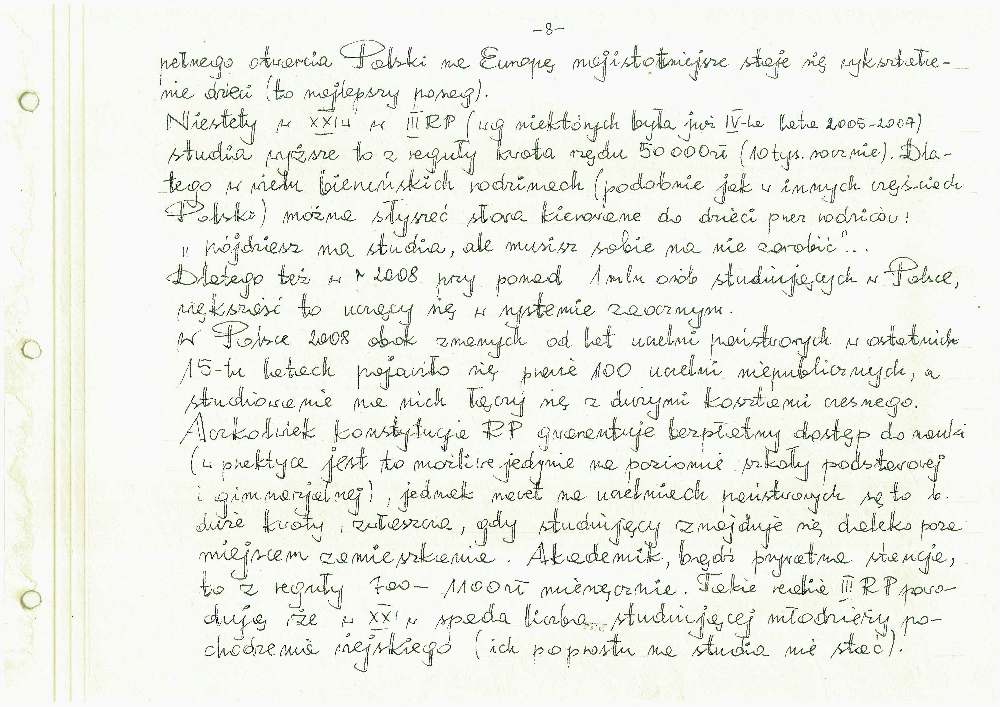 -8-
pełnego otwarcia Polski na Europę najistotniejsze staje się wykształce-
nie dzieci (to najlepszy posag).
Niestety w XXI w w III RP (wg niektórych była już IV-ta lata 2005-2007)
studia wyższe to z reguły kwota rzędu 50 000 zł (10 tys. rocznie). Dla-
tego w wielu bieńczńskich rodzinach (podobnie jak w innych częściach
Polski) można słyszeć słowa kierowane do dzieci przez rodziców:
"pójdziesz na studia, ale musisz sobie na nie zarobić"...
Dlatego też w r 2008 przy ponad 1 mln osób studiujących w Polsce,
większość to uczący się w systemie zaocznym.
W Polsce 2008 obok znanych od lat uczelni państwowych w ostatnich
15-tu latach pojawiło się prawie 100 uczelni niepublicznych, a
studiowanie na nich łączy się z dużymi kosztami czesnego.
Aczkolwiek konstytucja RP gwarantuje bezpłatny dostęp do nauki
(w praktyce jest to możliwe jedynie na poziomie szkoły podstawowej
i gimnazjalnej), jednak nawet na uczelniach państwowych są to b.
duże kwoty, zwłaszcza, gdy studiujący znajduje się daleko poza
miejscem zamieszkania. Akademik, bądź prywatna stancja,
to z reguły 700- 1100 zł miesięcznie. Takie realia III RP powo-
dują że w XXI w spada liczba studiującej młodzieży po-
chodzenia wiejskiego (ich poprostu na studia nie stać).